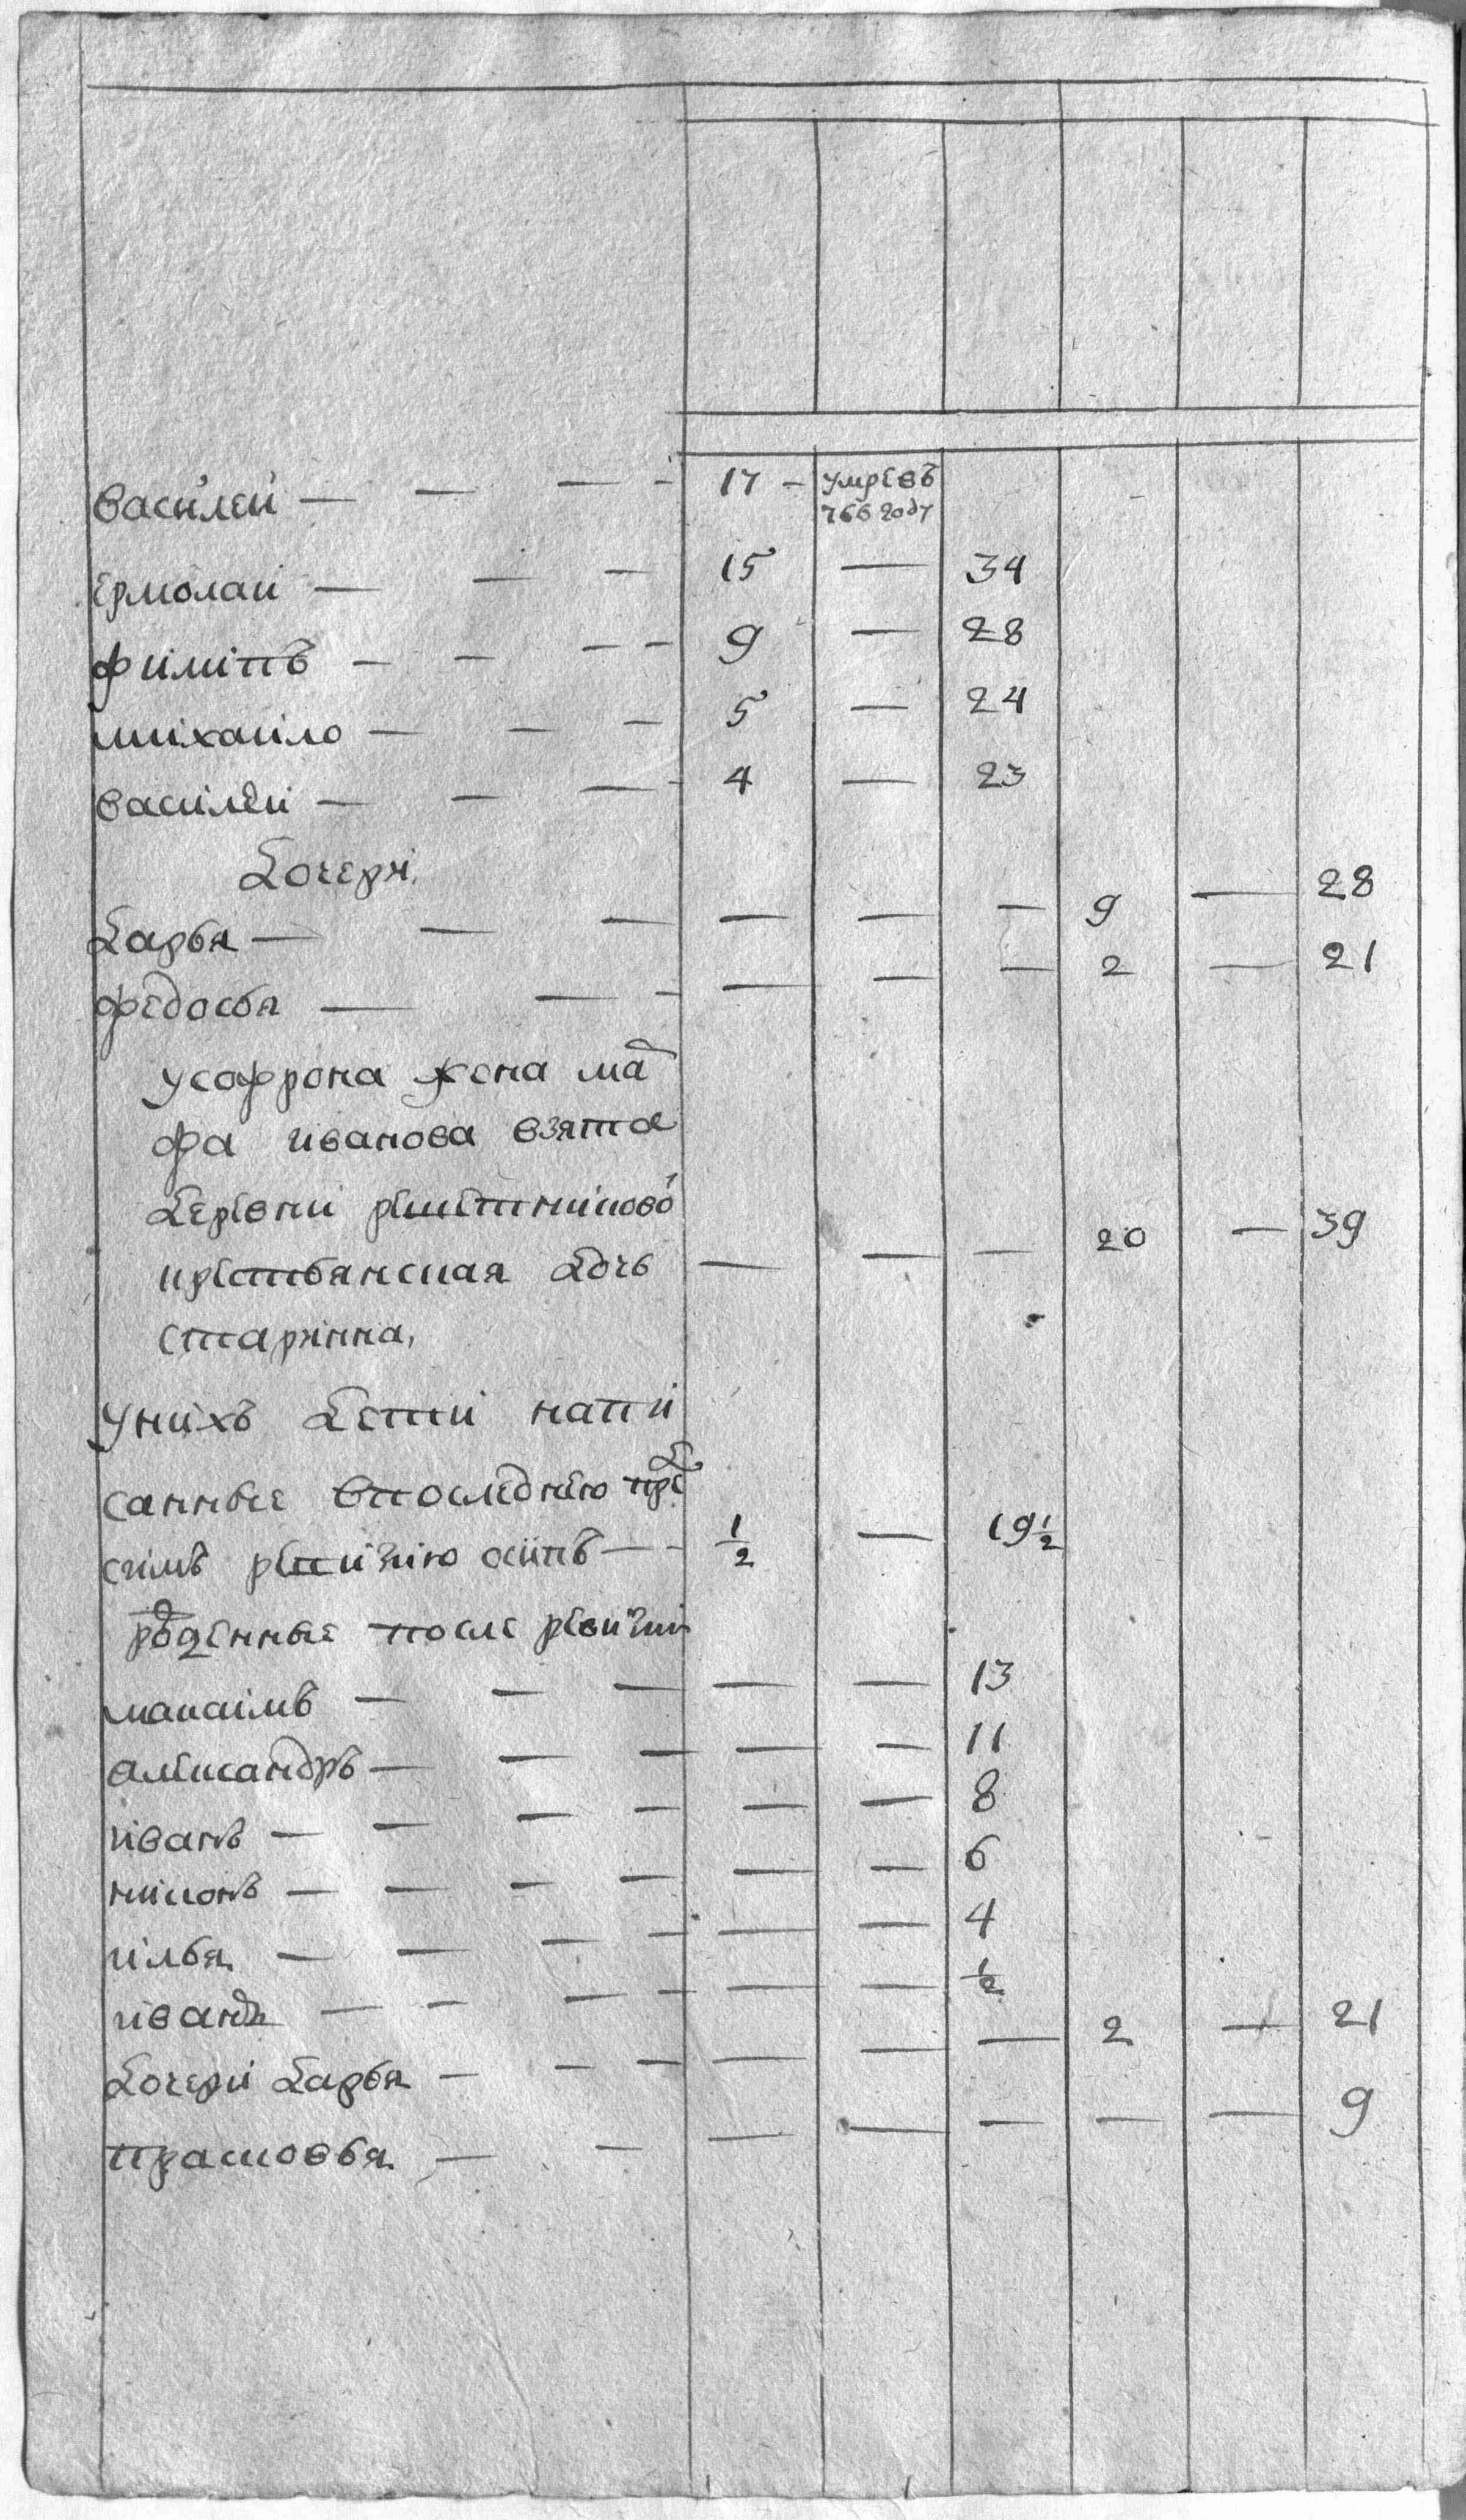 василей — — — - 17 - умре въ
766 году
ермолай — — — 15 — 34
филипъ — — - - 9 — 28
михаило — — — 5 — 24
василеи — — — 4 — 23
дочери
дарья — — — — — — 9 — 28
федосья — — - — — — 2 — 21
у софрона жена мар
фа иванова взята
деревни
крестьянская дочь — — — 20 — 39
старинна,
у нихъ дети напи
санные в последнюю пред
симъ ревизию осипъ — - 1/2 — 19 1/2
рожденные после ревизии
максимъ — — — — — 13
александръ — — — — — 11
иванъ — — — — — — 8
никонъ — — — — — — 6
илья — — — — — — 4
иванъ — - — - — — 1/2
дочери дарья — - — — — — 2 — 21
прасковья — — — — — — — 9